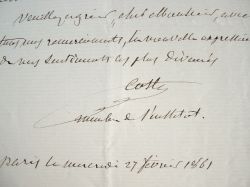 Veuillez agréer, cher Monsieur, avec
tous nos remerciments, la nouvelle expression
de mes sentiments les plus dévoués
Coste
membre de l'institut.
Paris le mercredi 27 février 1861